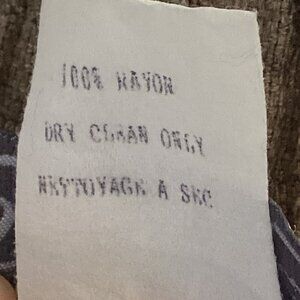 100% RAYON
DRY CLEAN ONLY
NETTOYAGE A SEC